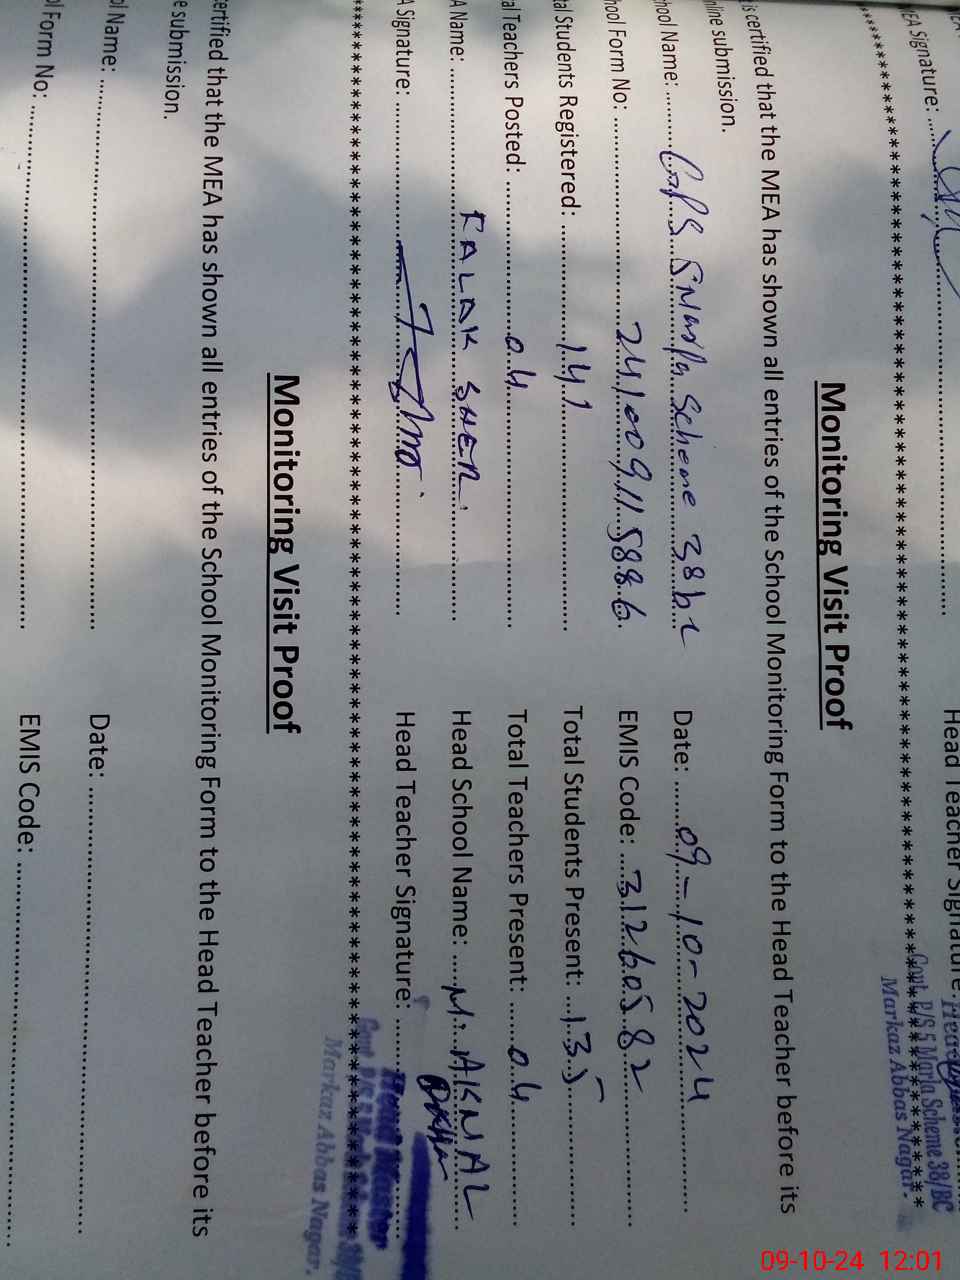 EA Signature: ........ Head Teacher Signature:
Govt. P/S 5 Marla Scheme 38/BC
Markaz Abbas Nagar.
Monitoring Visit Proof
is certified that the MEA has shown all entries of the School Monitoring Form to the Head Teacher before its
nline submission.
hool Name: GPS 5 Marla Scheme 38 bc Date: 09-10-2024
hool Form No: 241009115886 EMIS Code: 31260582
tal Students Registered: 141 Total Students Present: 135
al Teachers Posted: 04 Total Teachers Present: 04
A Name: FALAK SHER Head School Name: M. AKMAL
A Signature: ........ Head Teacher Signature: ........
Head Master
Markaz Abbas Nagar.
Monitoring Visit Proof
ertified that the MEA has shown all entries of the School Monitoring Form to the Head Teacher before its
e submission.
ol Name: ........ Date: ........
ol Form No: ........ EMIS Code: ........
09-10-24 12:01